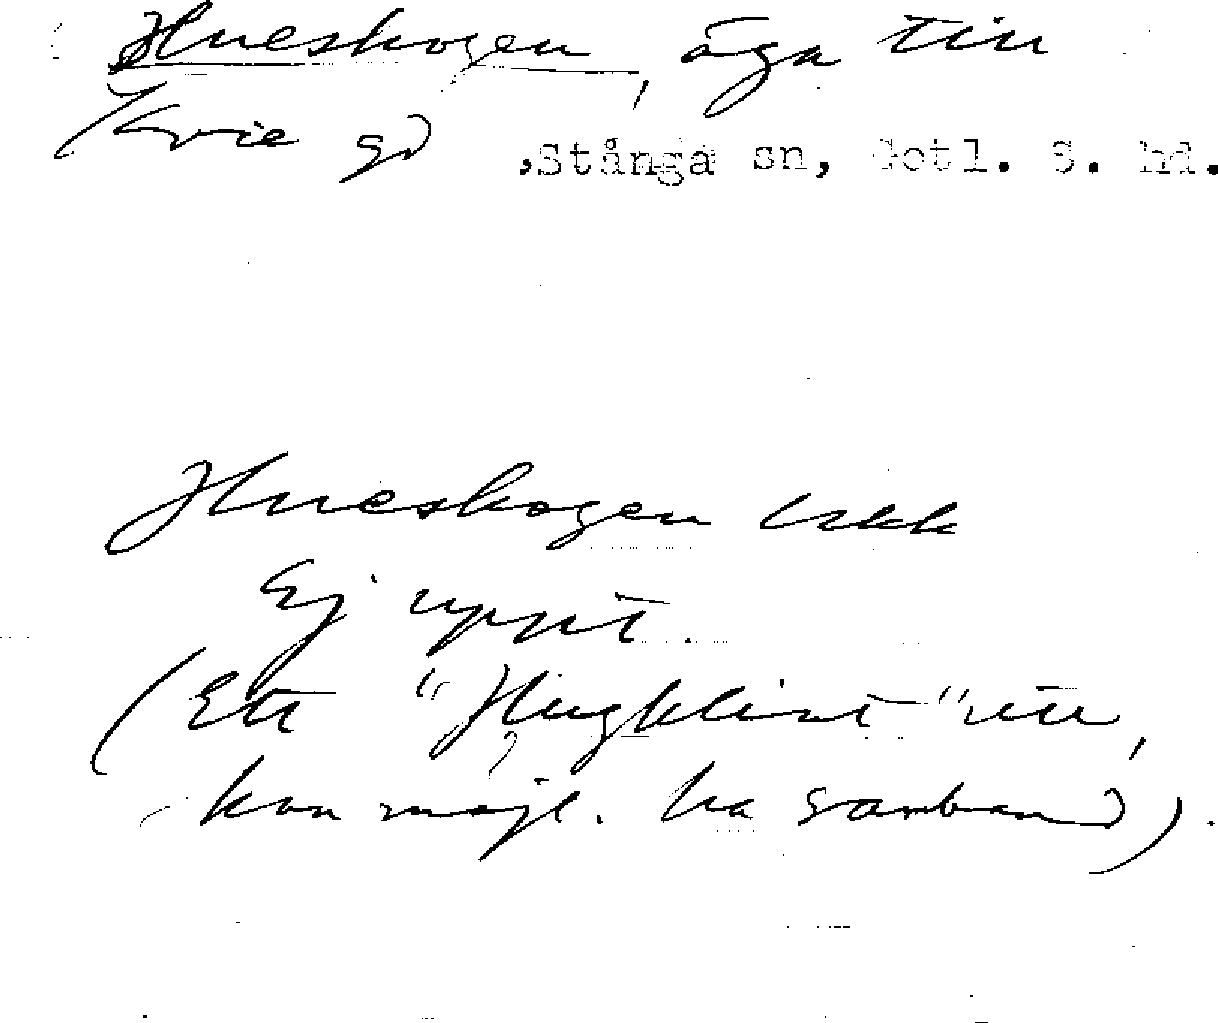 Hueskogen, äga till
Kvie gd, Stånga sn, Gotl. S. hd.
Hueskogen Lskk
Ej uppt.
(Ett "Hugklint"
kan möjl. ha samband).